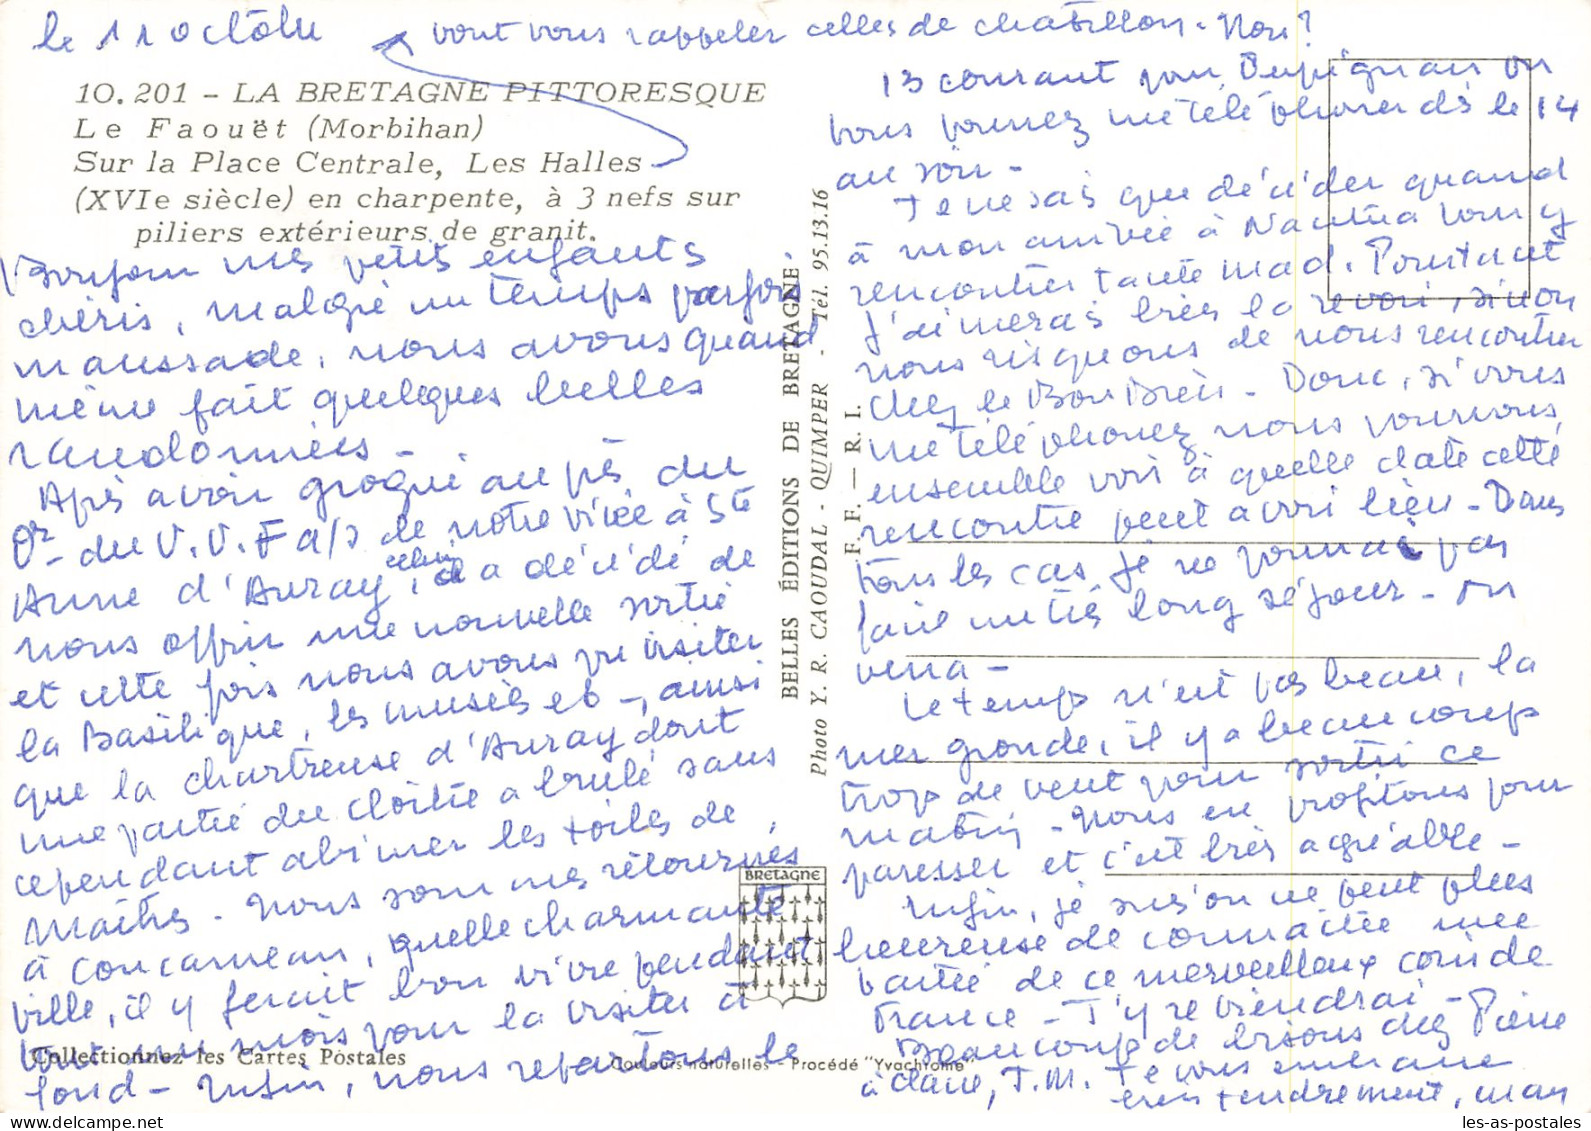 le 11 octobre
vont vous rappeler celles de chatillon. Non?
10.201 - LA BRETAGNE PITTORESQUE
Le Faouët (Morbihan)
Sur la Place Centrale, Les Halles
(XVIe siècle) en charpente, à 3 nefs sur
piliers extérieurs de granit.
Bonjour mes petits enfants
chéris, malgré un temps parfois
maussade, nous avons quand
même fait quelques belles
randonnées -
Après avoir grogné au près du
Dr - du V.V.F a/s de notre virée à Ste
Anne d'Auray, celui ci a décidé de
nous offrir une nouvelle sortie
et cette fois nous avons pu visiter
la Basilique, les musées etc, ainsi
que la chartreuse d'Auray dont
une partie du cloître a brulé sans
cependant abimer les toiles de
Maîtres. Nous sommes retournés
à Concarneau, quelle charmante
ville, il y ferait bon vivre pendant
tout un mois pour la visiter à
fond - Enfin, nous repartons le
Collectionnez les Cartes Postales
BELLES ÉDITIONS DE BRETAGNE.
Photo Y. R. CAOUDAL - QUIMPER - Tél. 95.13.16
F. F. — R. I.
BRETAGNE
Couleurs naturelles - Procédé "Yvachrome"
13 courant pour Perpignan ou
vous pourrez me téléphoner dès le 14
au soir -
Je ne sais que décider quand
à mon arrivée à Nantua pour y
rencontrer tante Mad. Pourtant
j'aimerais bien la revoir, sinon
nous risquons de nous rencontrer
chez le Bon Dieu - Donc, si vous
me téléphonez nous pourrons
ensemble voir à quelle date cette
rencontre peut avoir lieu - Dans
tous les cas, je ne pourrai pas
faire un très long séjour - on
verra -
Le temps n'est pas beau, la
mer gronde, il y a beaucoup
trop de vent pour sortir ce
matin - Nous en profitons pour
paresser et c'est très agréable -
Enfin, je suis on ne peut plus
heureuse de connaître une
partie de ce merveilleux coin de
France - J'y reviendrai -
Beaucoup de bisous chez Pierre
à Claire, J.M. Je vous embrasse
bien tendrement, mam
les-as-postales